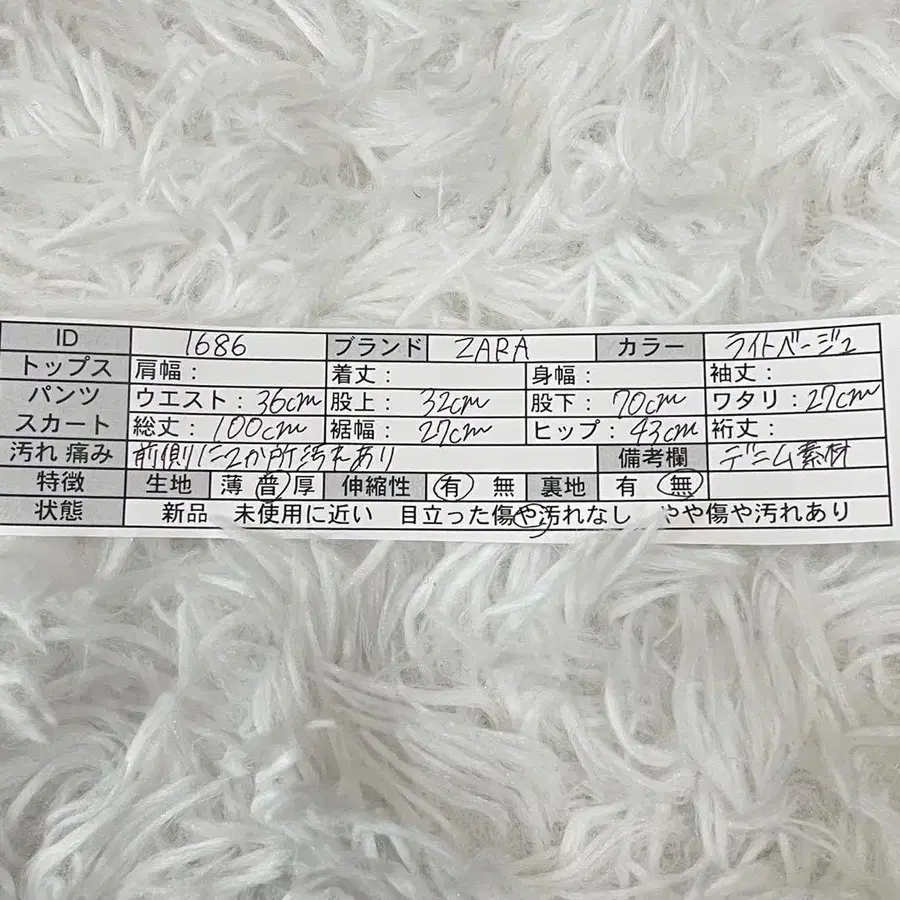 ID 1686 ブランド ZARA カラー ライトベージュ
トップス 肩幅： 着丈： 身幅： 袖丈：
パンツ ウエスト：36cm 股上：32cm 股下：70cm ワタリ：27cm
スカート 総丈：100cm 裾幅：27cm ヒップ：43cm 裄丈：
汚れ 痛み 前側に2か所汚れあり 備考欄 デニム素材
特徴 生地 薄 普 厚 伸縮性 有 無 裏地 有 無
状態 新品 未使用に近い 目立った傷や汚れなし やや傷や汚れあり